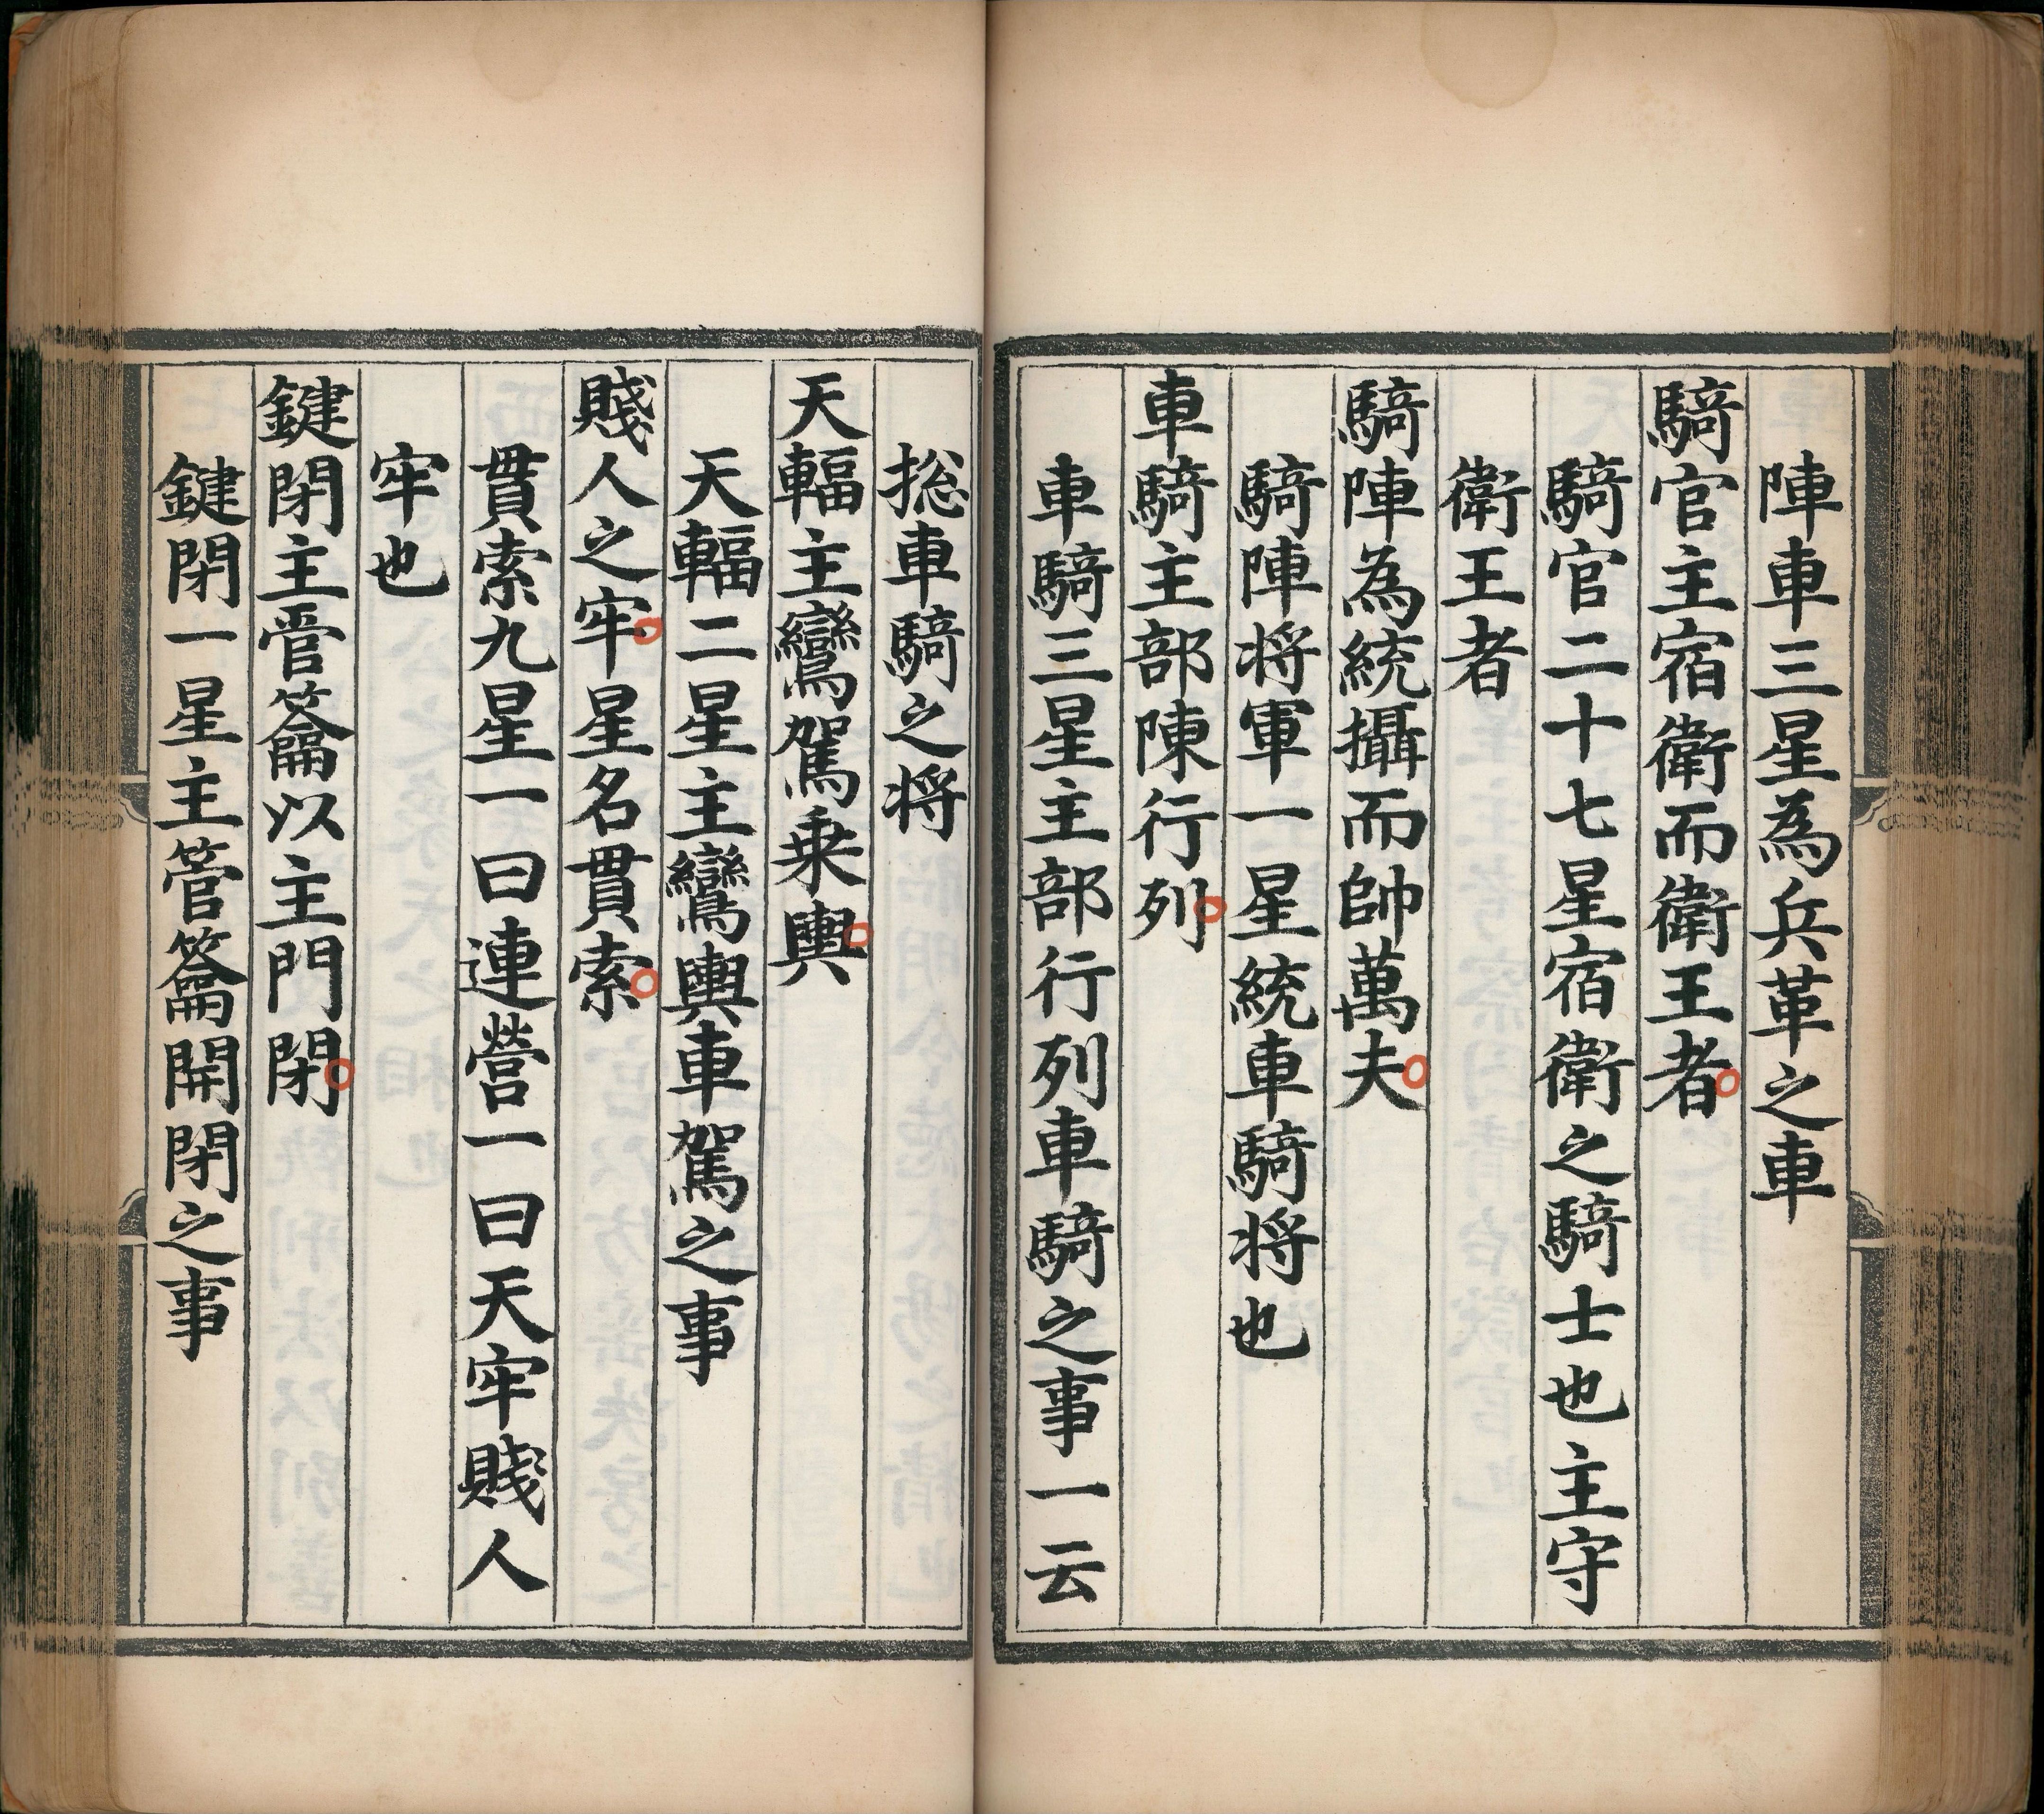 陣車三星為兵革之車
騎官主宿衛而衛王者
騎官二十七星宿衛之騎士也主守
衛王者
騎陣為統攝而帥萬夫
騎陣将軍一星統車騎将也
車騎主部陳行列
車騎三星主部行列車騎之事一云
捴車騎之将
天輻主鸞駕乗輿
天輻二星主鸞輿車駕之事
賤人之牢星名貫索
貫索九星一曰連營一曰天牢賤人
牢也
鍵閉主管籥以主門閉
鍵閉一星主管籥開閉之事